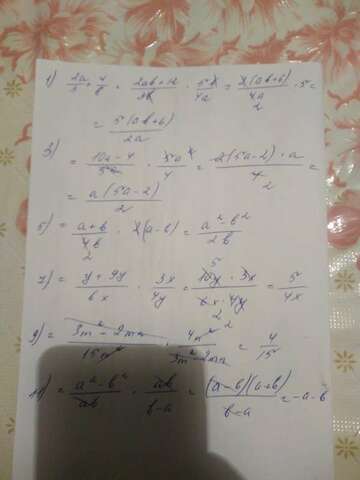 1) 2a/3 + 4/b = 2ab+12/3b · 5b/4a = 2(ab+6)/4a · 5 =
2
= 5(ab+6)/2a
3) = 10a-4/5a · 5a²/4 = 2(5a-2)·a/4 =
2
= a(5a-2)/2
5) = a+b/4b · 2(a-b) = a²-b²/2b
2
7) = y+9y/6x · 3x/4y = 10y·3x/6x·4y = 5/4x
9) = 3m²-2mn/15n² · 4n²/3m²-2mn = 4/15
= a²-b²/ab · ab/b-a = (a-b)(a+b)/b-a = -a-b